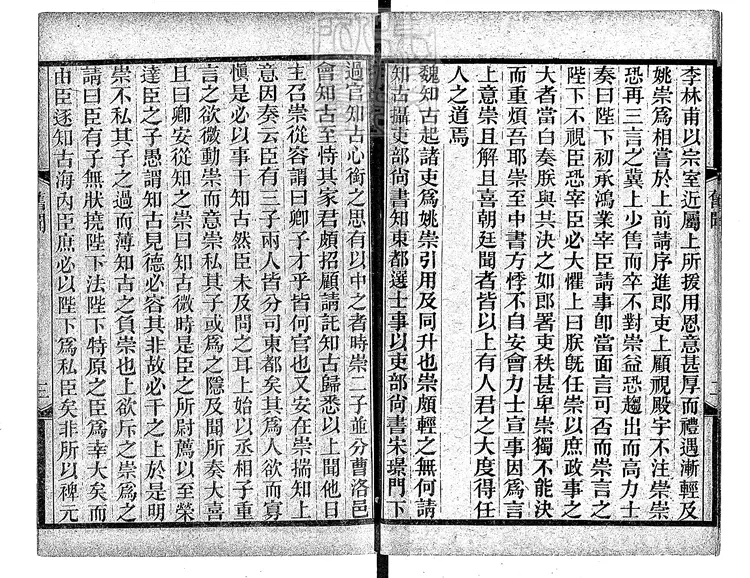 李林甫以宗室近屬上所援用恩意甚厚而禮遇漸輕及
姚崇爲相嘗於上前請序進郎吏上顧視殿宇不注崇崇
恐再三言之冀上少售而卒不對崇益恐趨出而高力士
奏曰陛下初承鴻業宰臣請事卽當面言可否而崇言之
陛下不視臣恐宰臣必大懼上曰朕旣任崇以庶政事之
大者當白奏朕與共決之如郎署吏秩甚卑崇獨不能決
而重煩吾耶崇至中書方悸不自安會力士宣事因爲言
上意崇且解且喜朝廷聞者皆以上有人君之大度得任
人之道焉
魏知古起諸吏爲姚崇引用及同升也崇頗輕之無何請
知古攝吏部尚書知東都選士事以吏部尚書宋璟門下
過官知古心銜之思有以中之者時崇二子並分曹洛邑
會知古至恃其家君頗招顧請託知古歸悉以上聞他日
主召崇從容謂曰卿子才乎皆何官也又安在崇揣知上
意因奏云臣有三子兩人皆分司東都矣其爲人欲而寡
愼是必以事干知古然臣未及問之耳上始以丞相子重
言之欲微動崇而意崇私其子或爲之隱及聞所奏大喜
且曰卿安從知之崇曰知古微時是臣之所慰薦以至榮
達臣之子愚謂知古見德必容其非故必干之上於是明
崇不私其子之過而薄知古之負崇也上欲斥之崇爲之
請曰臣有子無狀撓陛下法陛下特原之臣爲幸大矣而
由臣逐知古海內臣庶必以陛下爲私臣矣非所以裨元